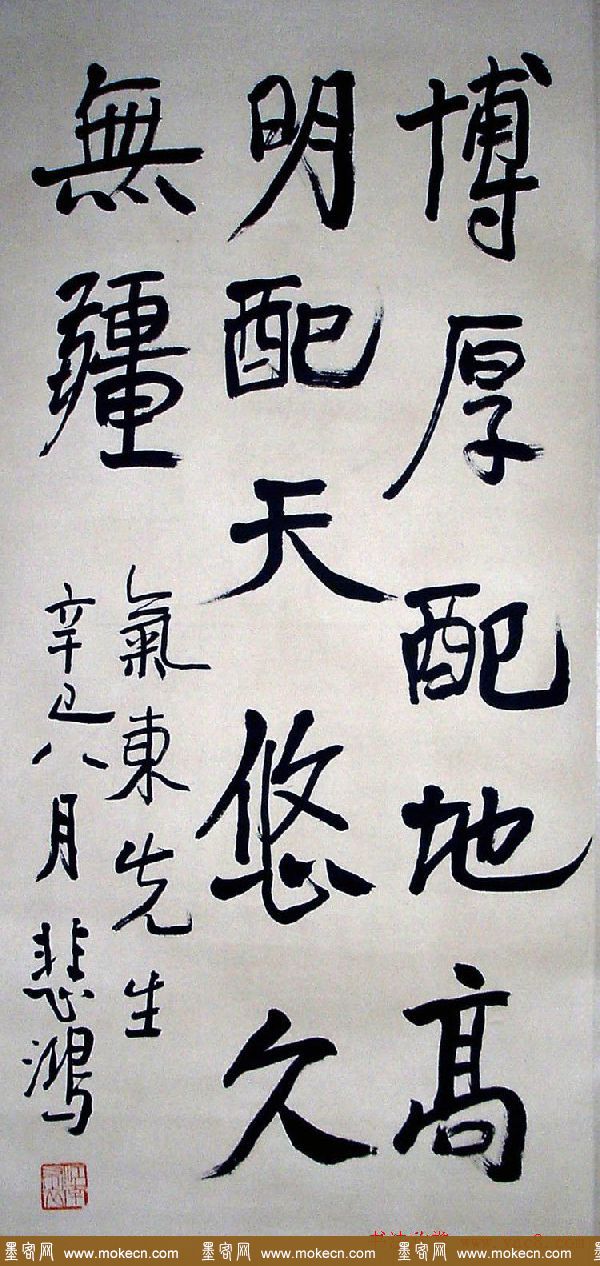 博厚配地高
明配天悠久
無疆
氣東先生
辛巳八月 悲鴻
墨客网 www.mokecn.com 墨客网 www.mokecn.com 墨客网 www.mokecn.com